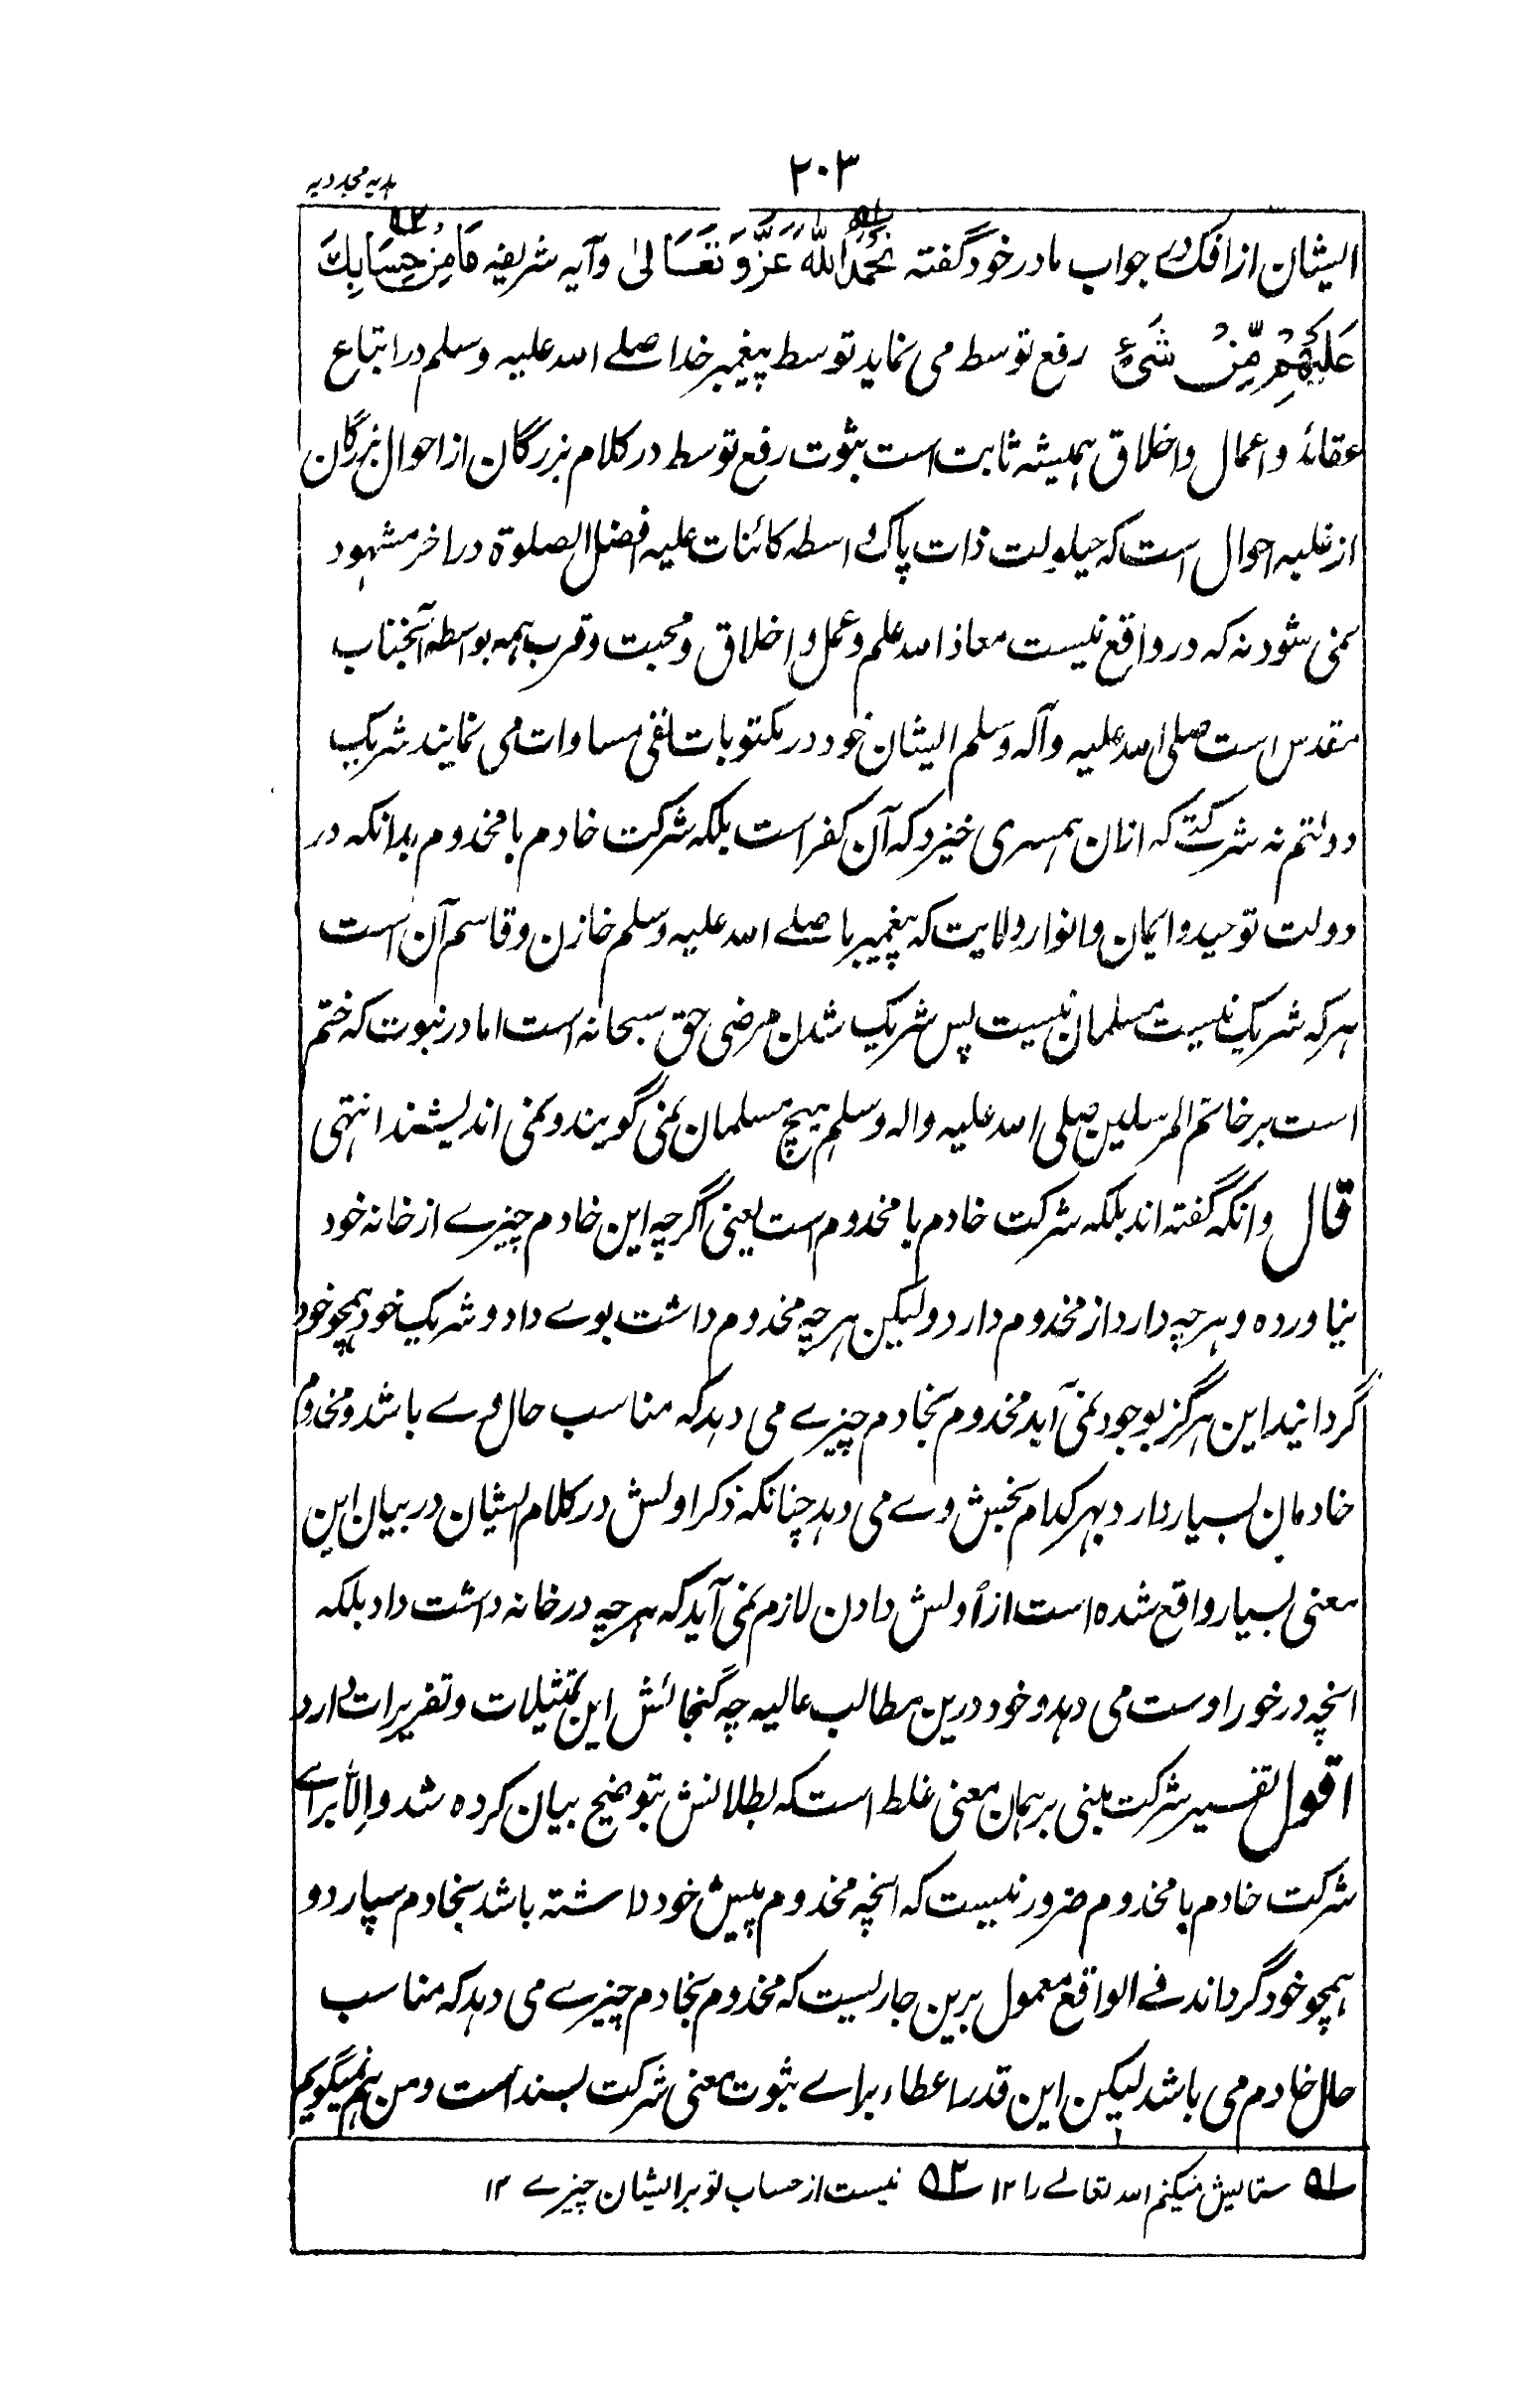 ہدیہ مجددیہ
۲۰۳
ایشان از افک در جواب مادر خود گفتہ نَحْمَدُ اللّٰہَ عَزَّ وَ تَعَالیٰ وآیہ شریفہ مَا مِنْ حِسَابِكَ
عَلَیْهِمْ مِّنْ شَیْءٍ رفع توسط می نماید توسط پیغمبر خدا صلے اللہ علیہ وسلم در اتباع
عقائد و اعمال و اخلاق ہمیشہ ثابت است ثبوت رفع توسط در کلام بزرگان از احوال بزرگان
از غلبہ احوال است کہ حیلولت ذات پاک واسطہ کائنات علیہ افضل الصلوة در آخر مشہود
نمی شود نہ کہ در واقع نیست معاذ اللہ علم و عمل و اخلاق و محبت و قرب ہمہ بواسطہ آنجناب
مقدس است صلی اللہ علیہ وآلہ وسلم ایشان خود در مکتوبات نفی مساوات می نمایند شریک
دولتم نہ شرکتے کہ ازان ہمسری خیزد کہ آن کفر است بلکہ شرکت خادم با مخدوم بدانکہ در
دولت توحید و ایمان و انوار ولایت کہ پیغمبر ما صلے اللہ علیہ وسلم خازن و قاسم آن است
ہر کہ شریک نیست مسلمان نیست پس شریک شدن مرضی حق سبحانہ است اما در نبوت کہ ختم
است بر خاتم المرسلین صلی اللہ علیہ والہ وسلم ہیچ مسلمان نمی گویند و نمی اندیشند انتہی
قال وانکہ گفتہ اند بلکہ شرکت خادم با مخدوم است یعنی اگرچہ این خادم چیزے از خانہ خود
نیاوردہ و ہرچہ دارد از مخدوم دارد ولیکن ہرچہ مخدوم داشت بوے داد و شریک خود ہمچو خود
گردانید این ہرگز بوجود نمی آید مخدوم بخادم چیزے می دہد کہ مناسب حال وے باشد و مخدوم
خادمان بسیار دارد بہر کدام بخش وے می دہد چنانکہ ذکر اولش در کلام ایشان در بیان این
معنی بسیار واقع شدہ است از اولش دادن لازم نمی آید کہ ہرچہ در خانہ داشت داد بلکہ
انچہ در خور اوست می دہد و خود درین مطالب عالیہ چہ گنجائش این تمثیلات و تقریرات دارد
اقول تفسیر شرکت مبنی بر ہمان معنی غلط است کہ بطلانش بتوضیح بیان کردہ شد و اِلّا برائے
شرکت خادم با مخدوم ضرور نیست کہ انچہ مخدوم پیش خود داشتہ باشد بخادم سپارد و
ہمچو خود گرداند فے الواقع معمول برین جاریست کہ مخدوم بخادم چیزے می دہد کہ مناسب
حال خادم می باشد لیکن این قدر اعطاء براے ثبوت معنی شرکت بسند است و من ہم نمیگویم
۵۱ ستایش میکنم اللہ تعالے را ۱۲ ۵۲ نیست از حساب تو بر ایشان چیزے ۱۲